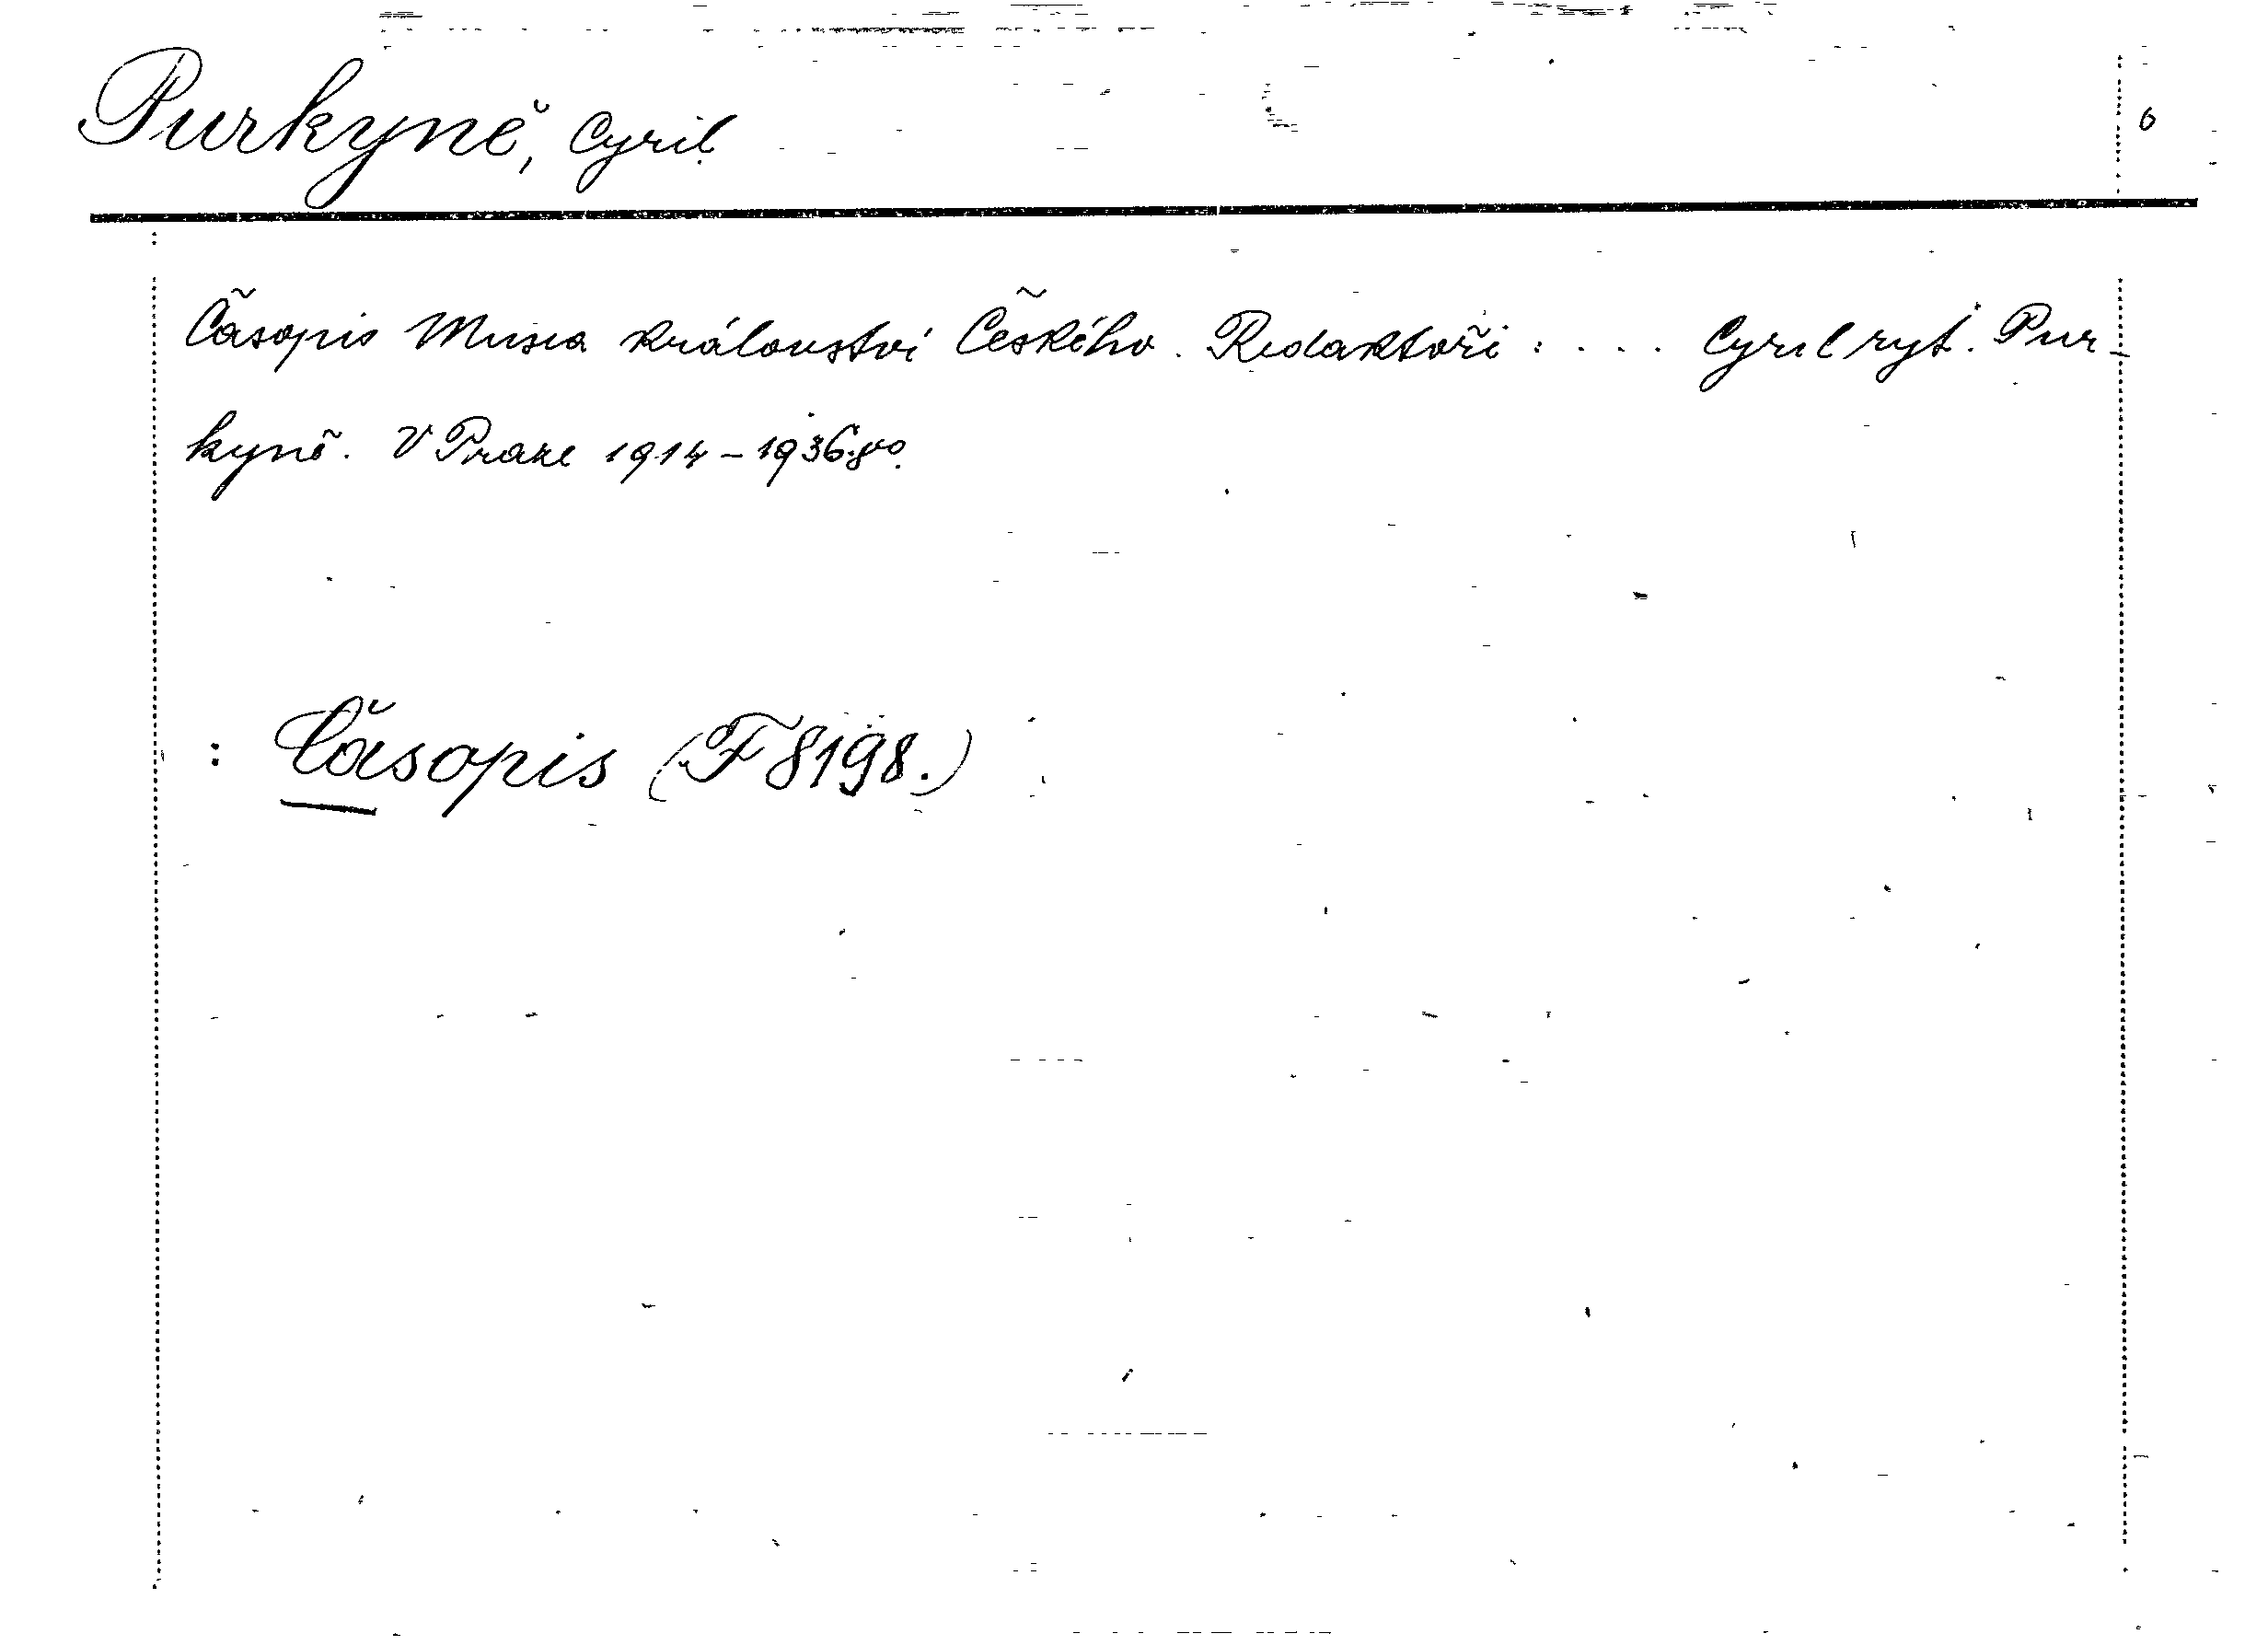 Purkyně, Cyril 6
Časopis Musea království Českého. Redaktoři: . . . Cyril ryt. Pur-
kyně. V Praze 1914-1936. 8vo.
: Časopis (F 8198.)